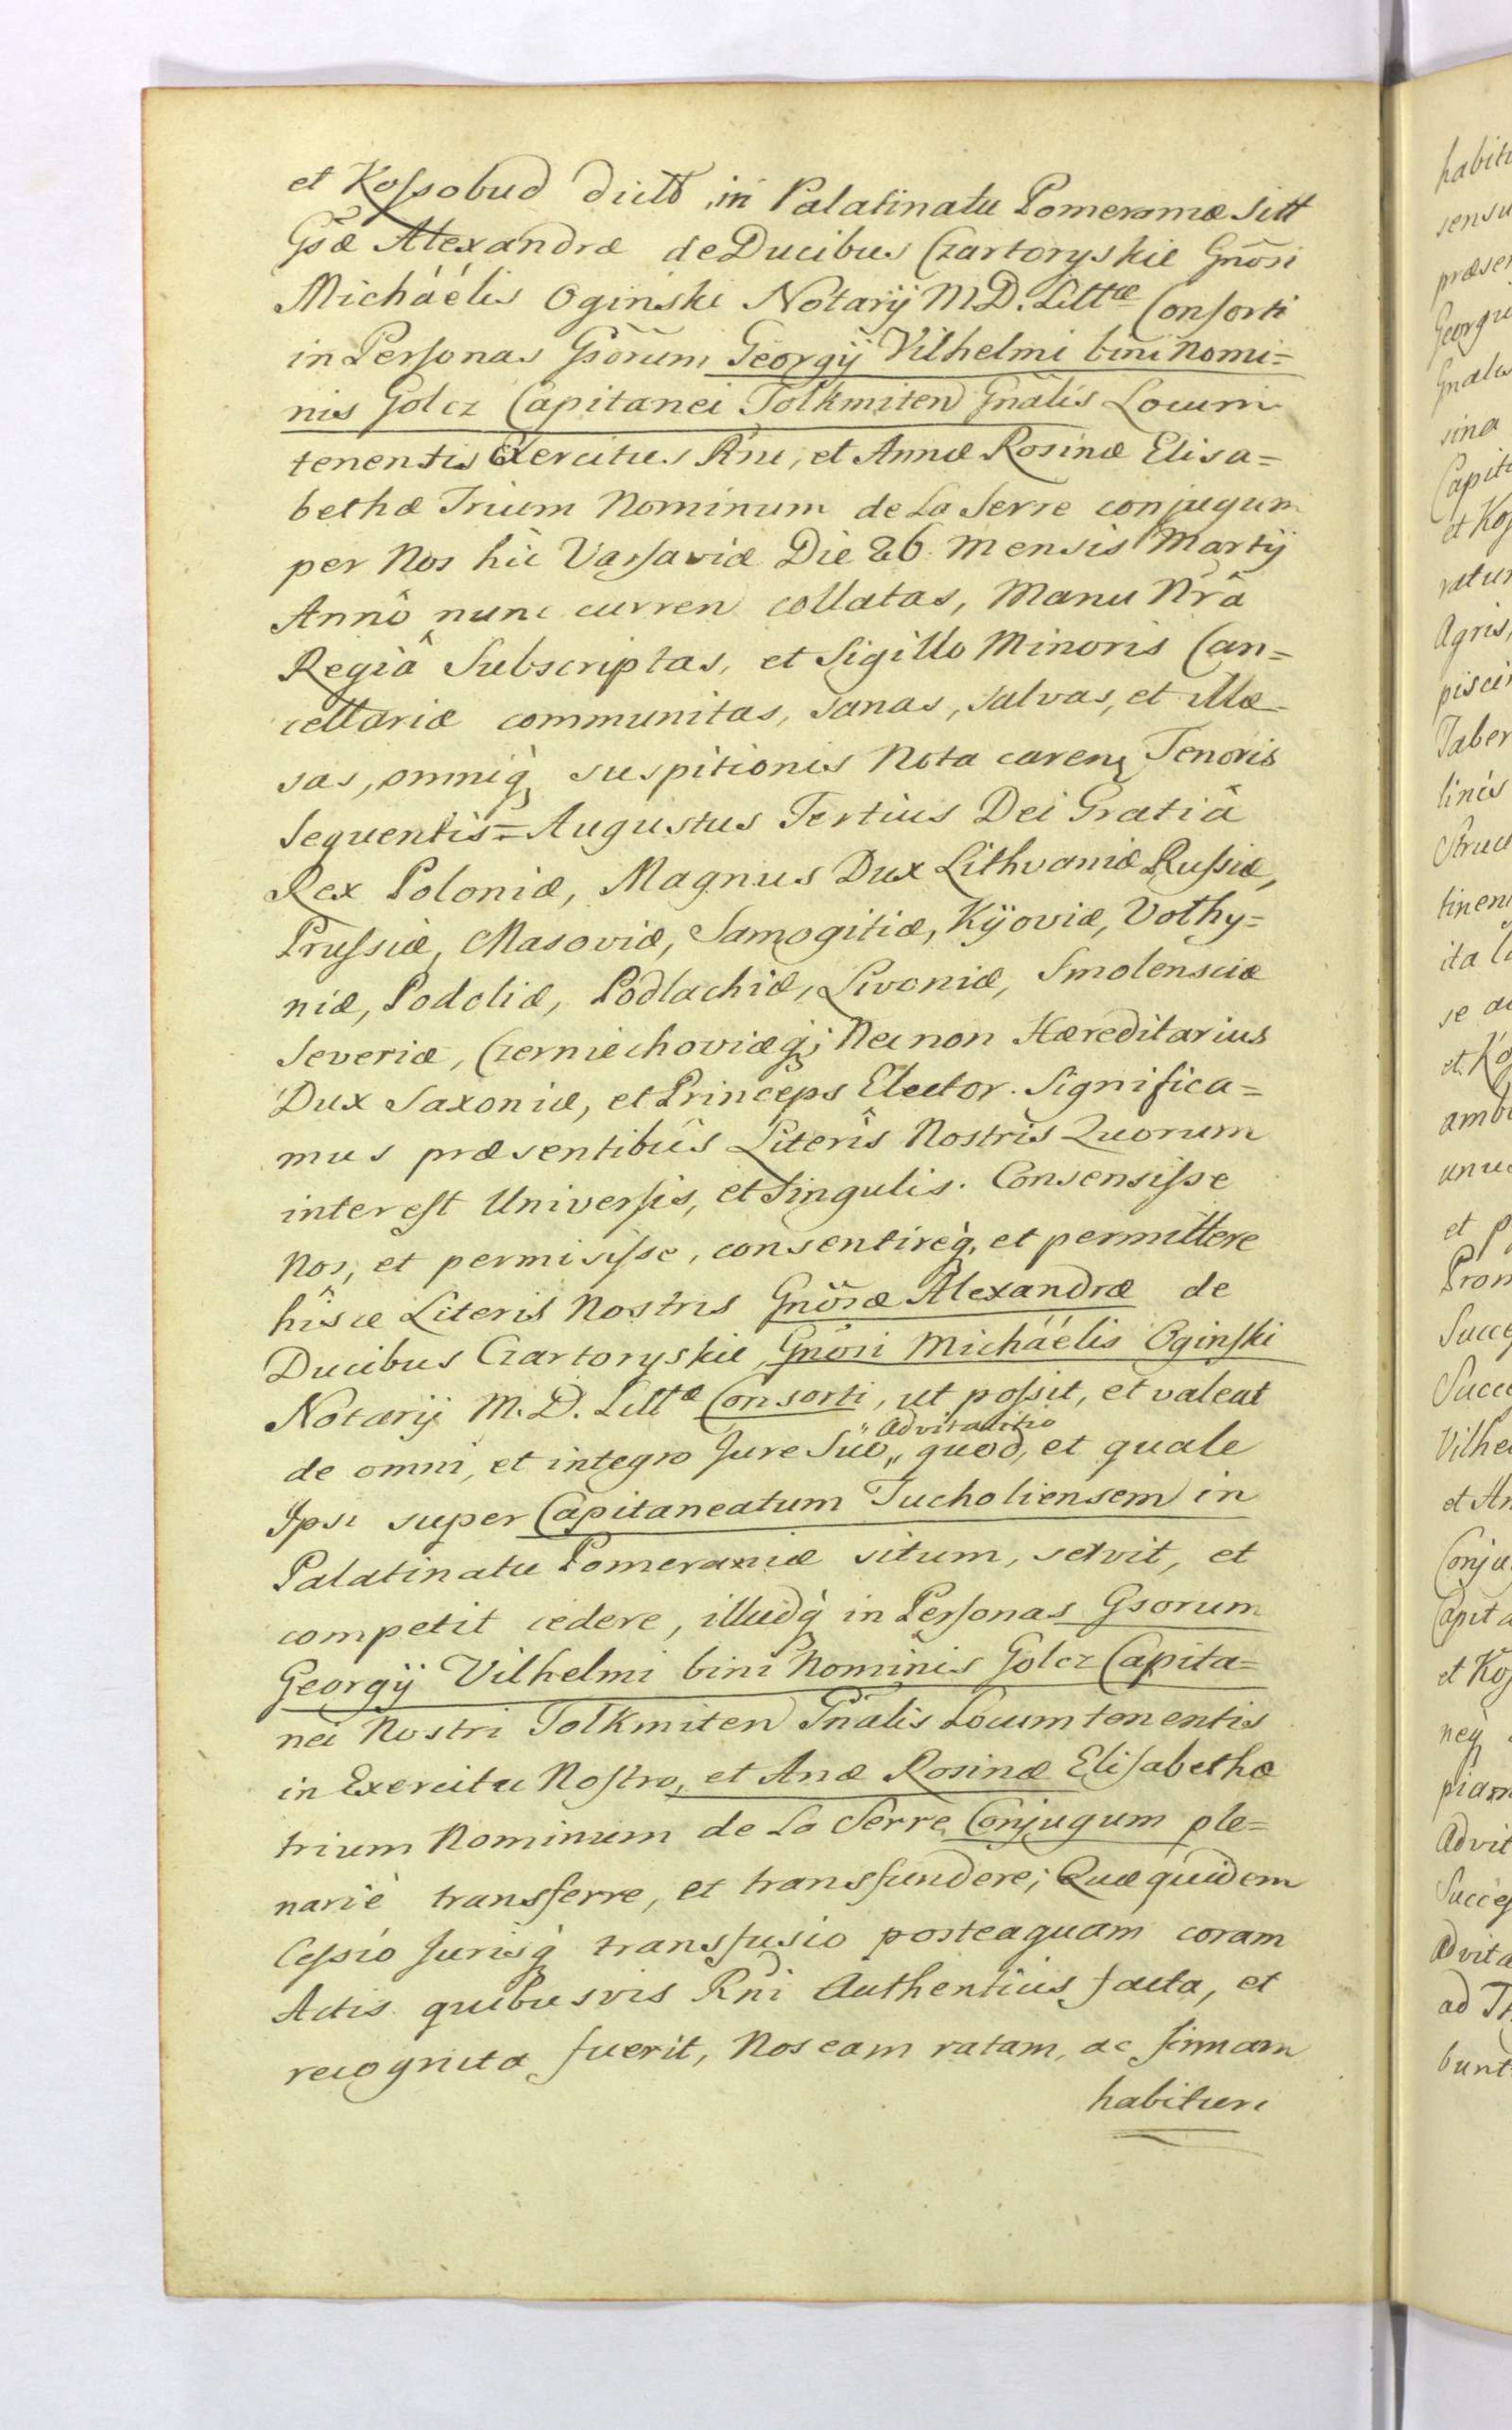 et Kossobud dict, in Palatinatu Pomeraniæ Sitt
Gsæ Alexandræ de Ducibus Czartoryskie Gnõsi
Michäelis Oginski Notarÿ M.D. Littæ Consorti
in Personas Gsõrum Georgÿ Vilhelmi bini Nomi=
nis Golcz Capitanei Tolkmiten Gnãlis Locum
tenentis Exercitus Rni, et Annæ Rosinæ Elisa=
bethæ Trium Nominum de La Serre conjugum
per Nos hic Varsaviæ Die 26 mensis Martÿ
Annô nunc curren collatas, Manu Nrâ
Regiâ Subscriptas, et Sigillo Minoris Can=
cellariæ communitas, sanas, salvas, et illæ=
sas, omniq; suspitionis Nota caren Tenoris
Sequentis= Augustus Tertius Dei Gratiâ
Rex Poloniæ, Magnus Dux Lithvaniæ Russiæ,
Prussiæ, Masoviæ, Samogitiæ, Kÿoviæ, Volhy=
niæ, Podoliæ, Podlachiæ, Livoniæ, Smolensciæ
Severiæ, Czerniechoviæq; Necnon Hæreditarius
Dux Saxoniæ, et Princeps Elector. Significa=
mus præsentibûs Literîs Nostris Quorum
interest Universis, et Singulis. Consensisse
Nos, et permisisse, consentireq, et permittere
hîsce Literis Nostris Gnõsæ Alexandræ de
Ducibus Czartoryskie Gnõsi Michäelis Oginski
Notarÿ M.D. Littæ Consorti, ut possit, et valeat
" Advitalitio
de omni, et integro Jure Suo,, quod, et quale
Ipsi super Capitaneatum Tucholiensem in
Palatinatu Pomeraniæ situm, servit, et
competit cedere, illudq̀ in Personas Gsorum
Georgÿ Vilhelmi bini Nominis Golcz Capita=
nei Nostri Tolkmiten Gnãlis Locumtenentis
in Exercitu Nostro, et Anæ Rosinæ Elisabethæ
trium Nominum de La Serre Conjugum ple=
nariè transferre, et transfundere; Quæ quidem
Cessio Jurisq̀ transfusio posteaquam coram
Actis quibusvis Rni Authenticis facta, et
recognita fuerit, Nos eam ratam, ac firmam
habituri